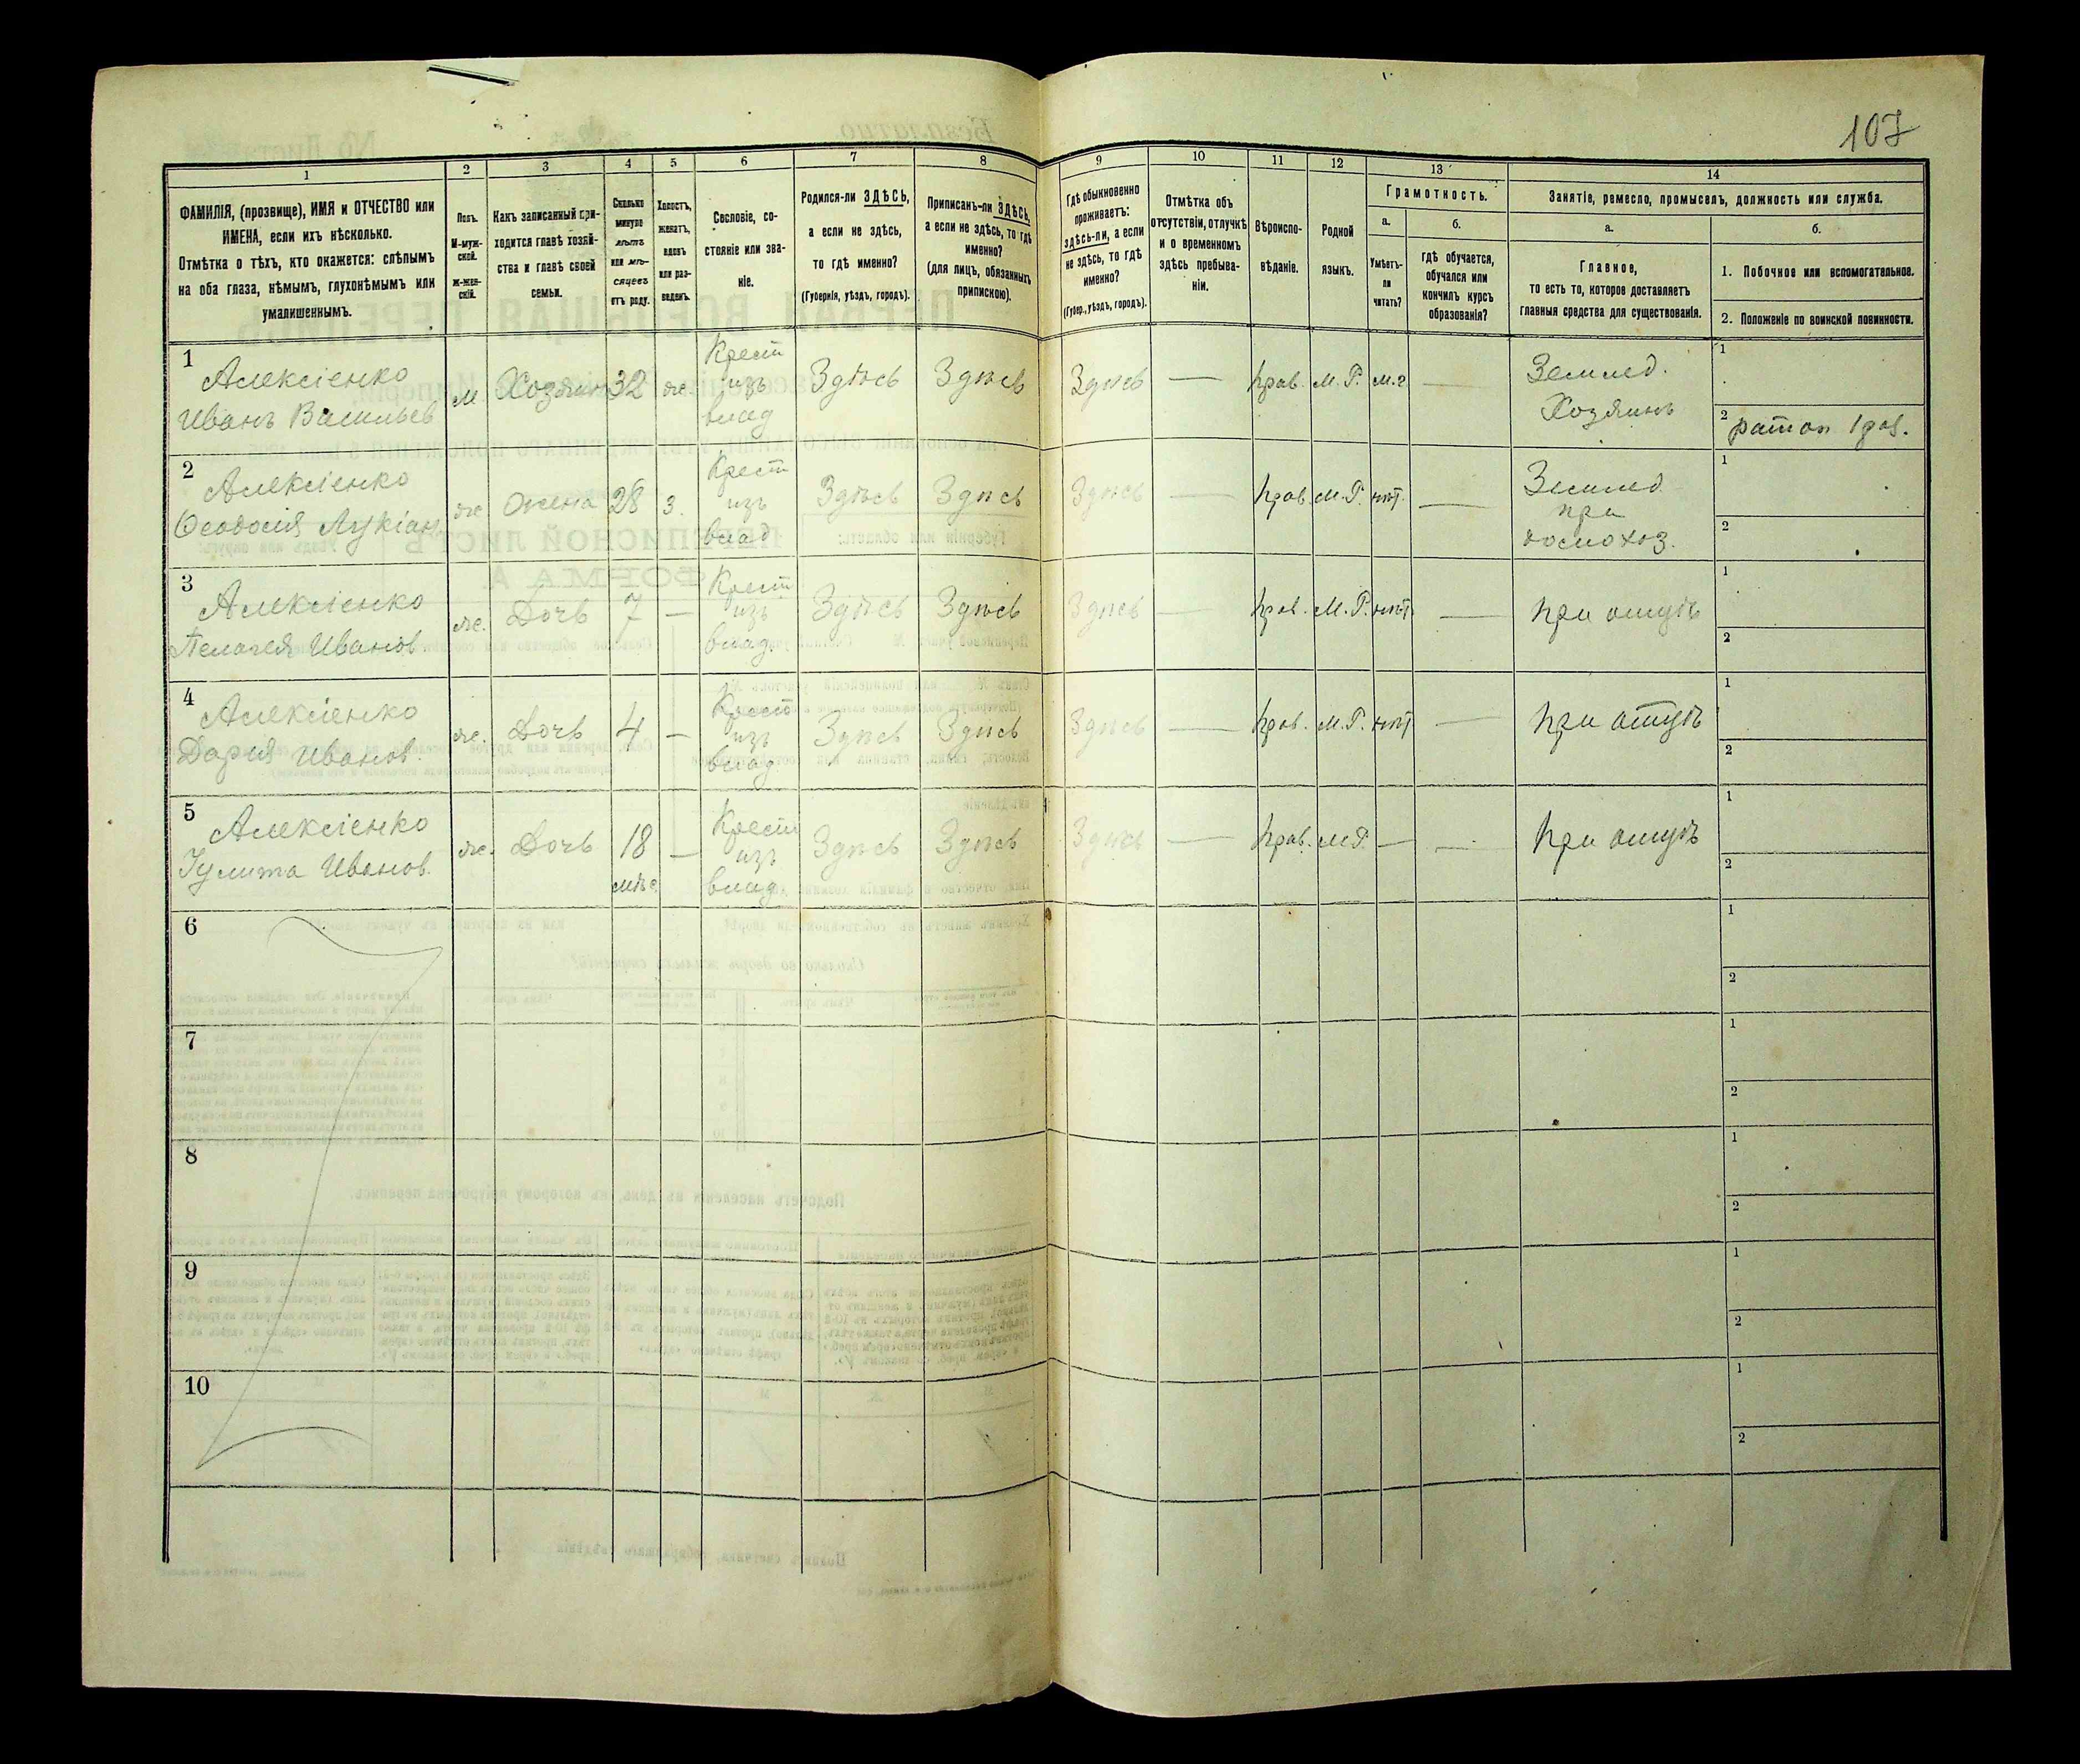 107
1 2 3 4 5 6 7 8 9 10 11 12 13 14
ФАМИЛІЯ, (прозвище), ИМЯ и ОТЧЕСТВО или ИМЕНА, если ихъ нѣсколько.
Отмѣтка о тѣхъ, кто окажется: слѣпымъ на оба глаза, нѣмымъ, глухонѣмымъ или умалишеннымъ.
Полъ.
М-мужской.
Ж-женскій.
Какъ записанный приходится главѣ хозяйства и главѣ своей семьи.
Сколько минуло лѣтъ или мѣсяцевъ отъ роду.
Холостъ, женатъ, вдовъ или разведенъ.
Сословіе, состояніе или званіе.
Родился-ли ЗДѢСЬ, а если не здѣсь, то гдѣ именно?
(Губернія, уѣздъ, городъ).
Приписанъ-ли ЗДѢСЬ, а если не здѣсь, то гдѣ именно?
(для лицъ, обязанныхъ припискою).
Гдѣ обыкновенно проживаетъ: здѣсь-ли, а если не здѣсь, то гдѣ именно?
(Губер., уѣздъ, городъ).
Отмѣтка объ отсутствіи, отлучкѣ и о временномъ здѣсь пребываніи.
Вѣроисповѣданіе.
Родной языкъ.
Грамотность.
а.
Умѣетъ-ли читать?
б.
гдѣ обучается, обучался или кончилъ курсъ образованія?
Занятіе, ремесло, промыселъ, должность или служба.
а.
Главное,
то есть то, которое доставляетъ главныя средства для существованія.
б.
1. Побочное или вспомогательное.
2. Положеніе по воинской повинности.
1 Алексіенко Иванъ Васильев м Хозяинъ 32 ж. Крест из влад Здѣсь Здѣсь Здѣсь — прав. М.Р. м.г — Землед. Хозяинъ 1 2 ратон
2 Алексіенко Ѳеодосія Лукіан. ж Жена 28 з. Крест изъ влад Здѣсь Здѣсь Здѣсь — прав. М.Р. нѣт. — Землед при 1 2
3 Алексіенко Пелагея Иванов. ж. Дочь 7 — Крест изъ влад. Здѣсь Здѣсь Здѣсь — прав. М.Р. нѣт — при отцѣ 1 2
4 Алексіенко Дарія Иванов. ж. Дочь 4 — Крест изъ влад. Здѣсь Здѣсь Здѣсь — прав. М.Р. нѣт — при отцѣ 1 2
5 Алексіенко Іулита Иванов. ж. Дочь 18 мѣс. — Крест изъ влад. Здѣсь Здѣсь Здѣсь — прав. М.Р. — — при отцѣ 1 2
6 1 2
7 1 2
8 1 2
9 1 2
10 1 2